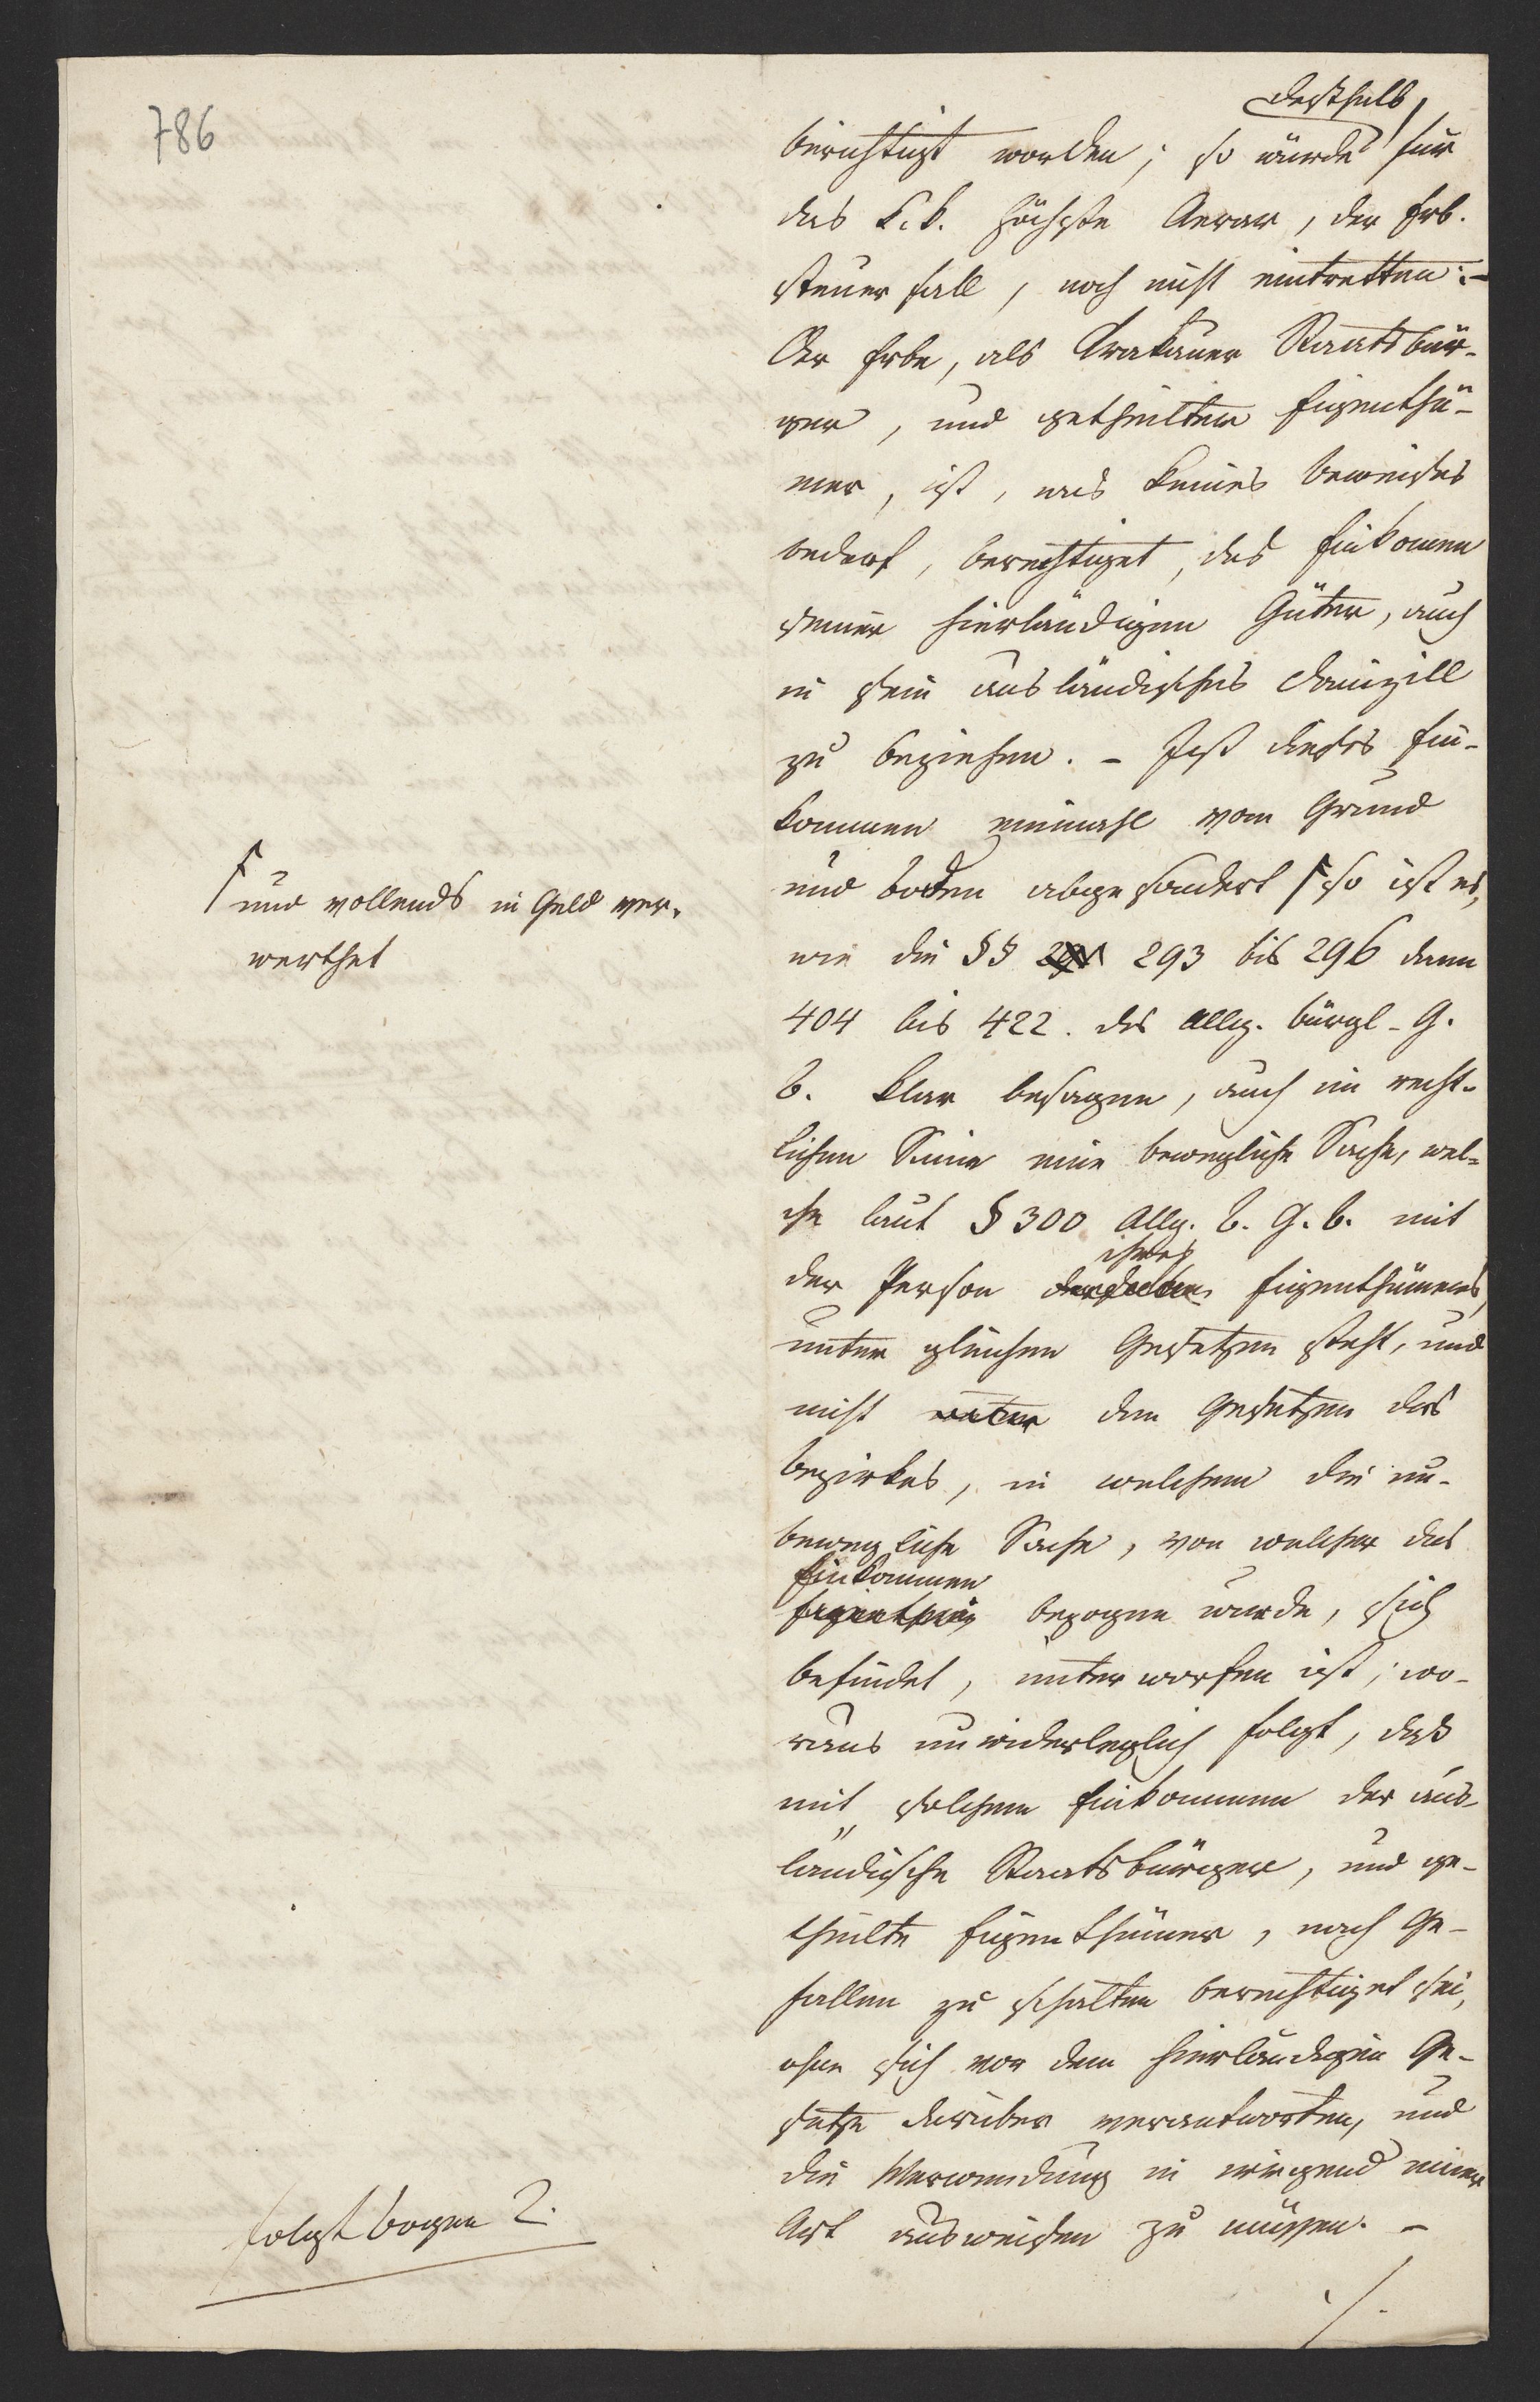 786
deßhalb
berichtigt worden; so würde für
das k.k. höchste Aerar, der Erb-
steuer fall, noch nicht eintretten.-
Der Erbe, als Krakauer Staatsbür-
ger, und getheilter Eigenthü-
mer, ist, was keines Beweises
bedarf, berechtiget, das Einkomen
seiner hierländigen Güter, auch
in sein ausländisches Domizill
zu beziehen. - Ist dieses Ein-
kommen einmahl vom Grund
und Boden abgesondert so ist es,
und vollends in Geld ver-
werthet
wie die §§ 293 bis 296 dann
404 bis 422. des Allg. bürgl. G.
B. klar besagen, auch im recht-
lichen Sinne eine bewegliche Sache, wel-
che laut § 300 Allg. b. G. b. mit
ihres
der Person derselben Eigenthümers,
unter gleichen Gesetzen steht, und
nicht unter den Gesetzen des
Bezirkes, in welchem die un-
bewegliche Sache, von welcher das
Einkommen
Eigenthum bezogen wurde, sich
befindet, unterworfen ist; wo-
raus unwiderleglich folgt, daß
mit solchem Einkommen der aus-
ländische Staatsbürger, und ge-
theilte Eigenthümer, nach Ge-
fallen zu schalten berechtiget sei,
ohne sich vor dem hierländigen Ge-
setze darüber verantworten, und
die Verwendung in irgend einer
Art ausweisen zu müssen. -
folgt Bogen 2.
./.